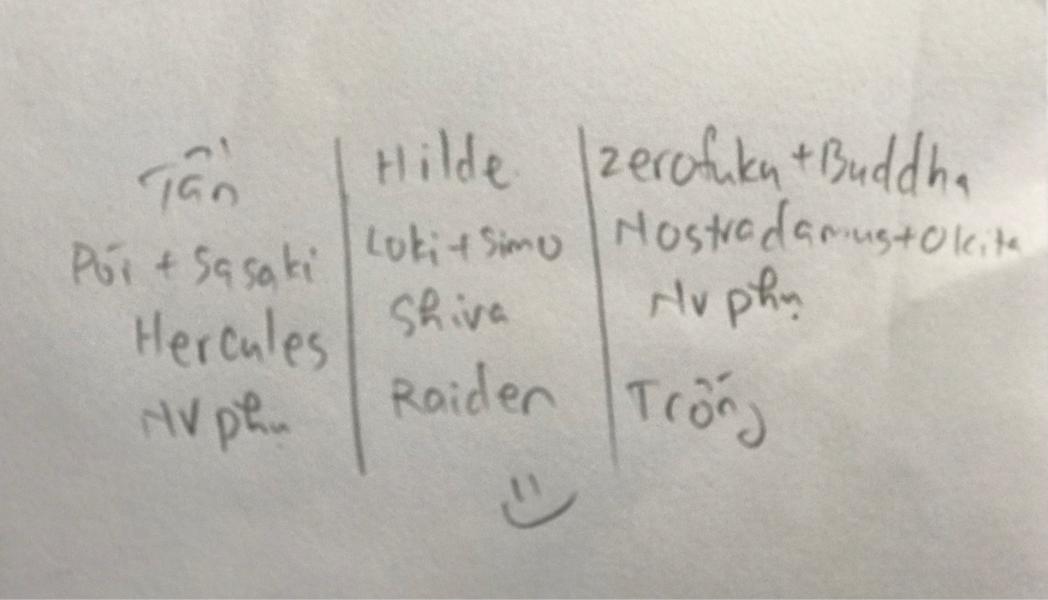 Tần | Hilde | Zerofuku + Buddha
Pói + Sasaki | Loki + Simo | Nostradamus + Okita
Hercules | Shiva | NV phụ
NV phụ | Raiden | Trống